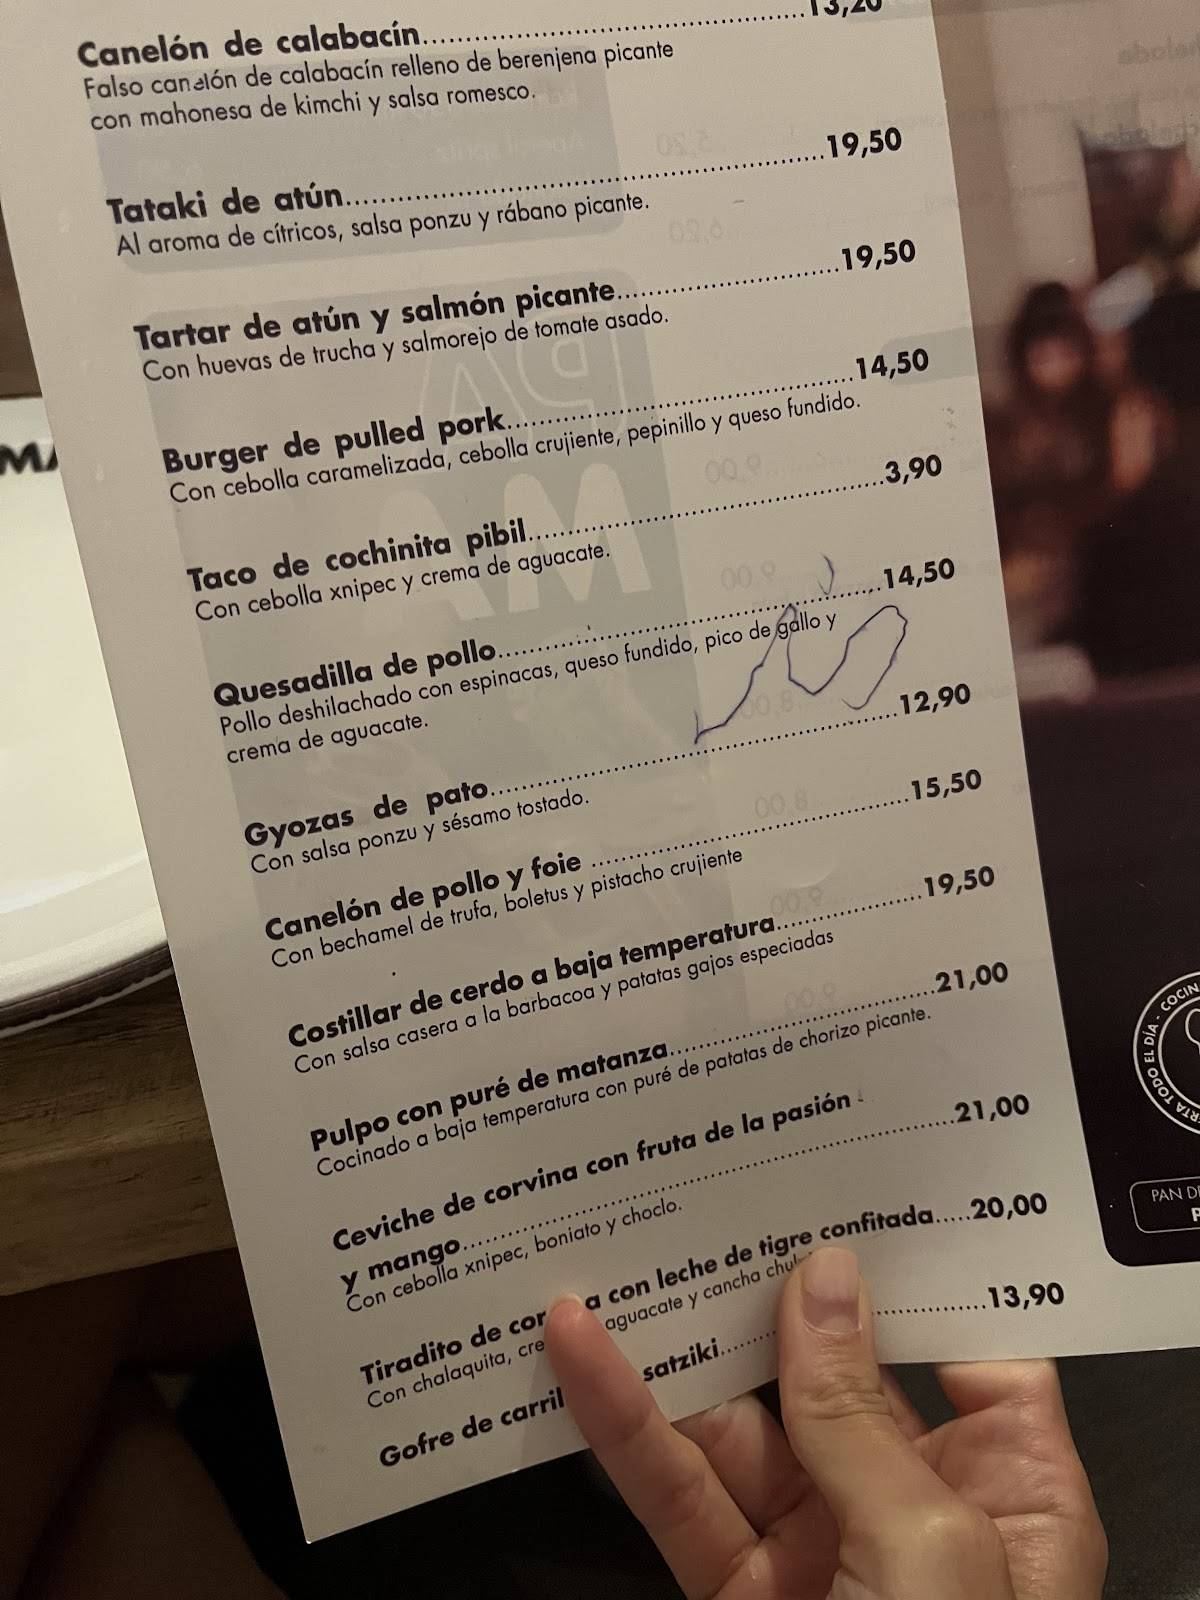 Canelón de calabacín..........13,20
Falso canelón de calabacín relleno de berenjena picante
con mahonesa de kimchi y salsa romesco.
Tataki de atún..........19,50
Al aroma de cítricos, salsa ponzu y rábano picante.
Tartar de atún y salmón picante..........19,50
Con huevas de trucha y salmorejo de tomate asado.
Burger de pulled pork..........14,50
Con cebolla caramelizada, cebolla crujiente, pepinillo y queso fundido.
Taco de cochinita pibil..........3,90
Con cebolla xnipec y crema de aguacate.
Quesadilla de pollo..........14,50
Pollo deshilachado con espinacas, queso fundido, pico de gallo y
crema de aguacate.
Gyozas de pato..........12,90
Con salsa ponzu y sésamo tostado.
Canelón de pollo y foie ..........15,50
Con bechamel de trufa, boletus y pistacho crujiente
Costillar de cerdo a baja temperatura..........19,50
Con salsa casera a la barbacoa y patatas gajos especiadas
Pulpo con puré de matanza..........21,00
Cocinado a baja temperatura con puré de patatas de chorizo picante.
Ceviche de corvina con fruta de la pasión
y mango..........21,00
Con cebolla xnipec, boniato y choclo.
Tiradito de cor a con leche de tigre confitada.....20,00
Con chalaquita, cre aguacate y cancha chul
Gofre de carril satziki..........13,90
TODO EL DÍA - COCIN
PAN DE